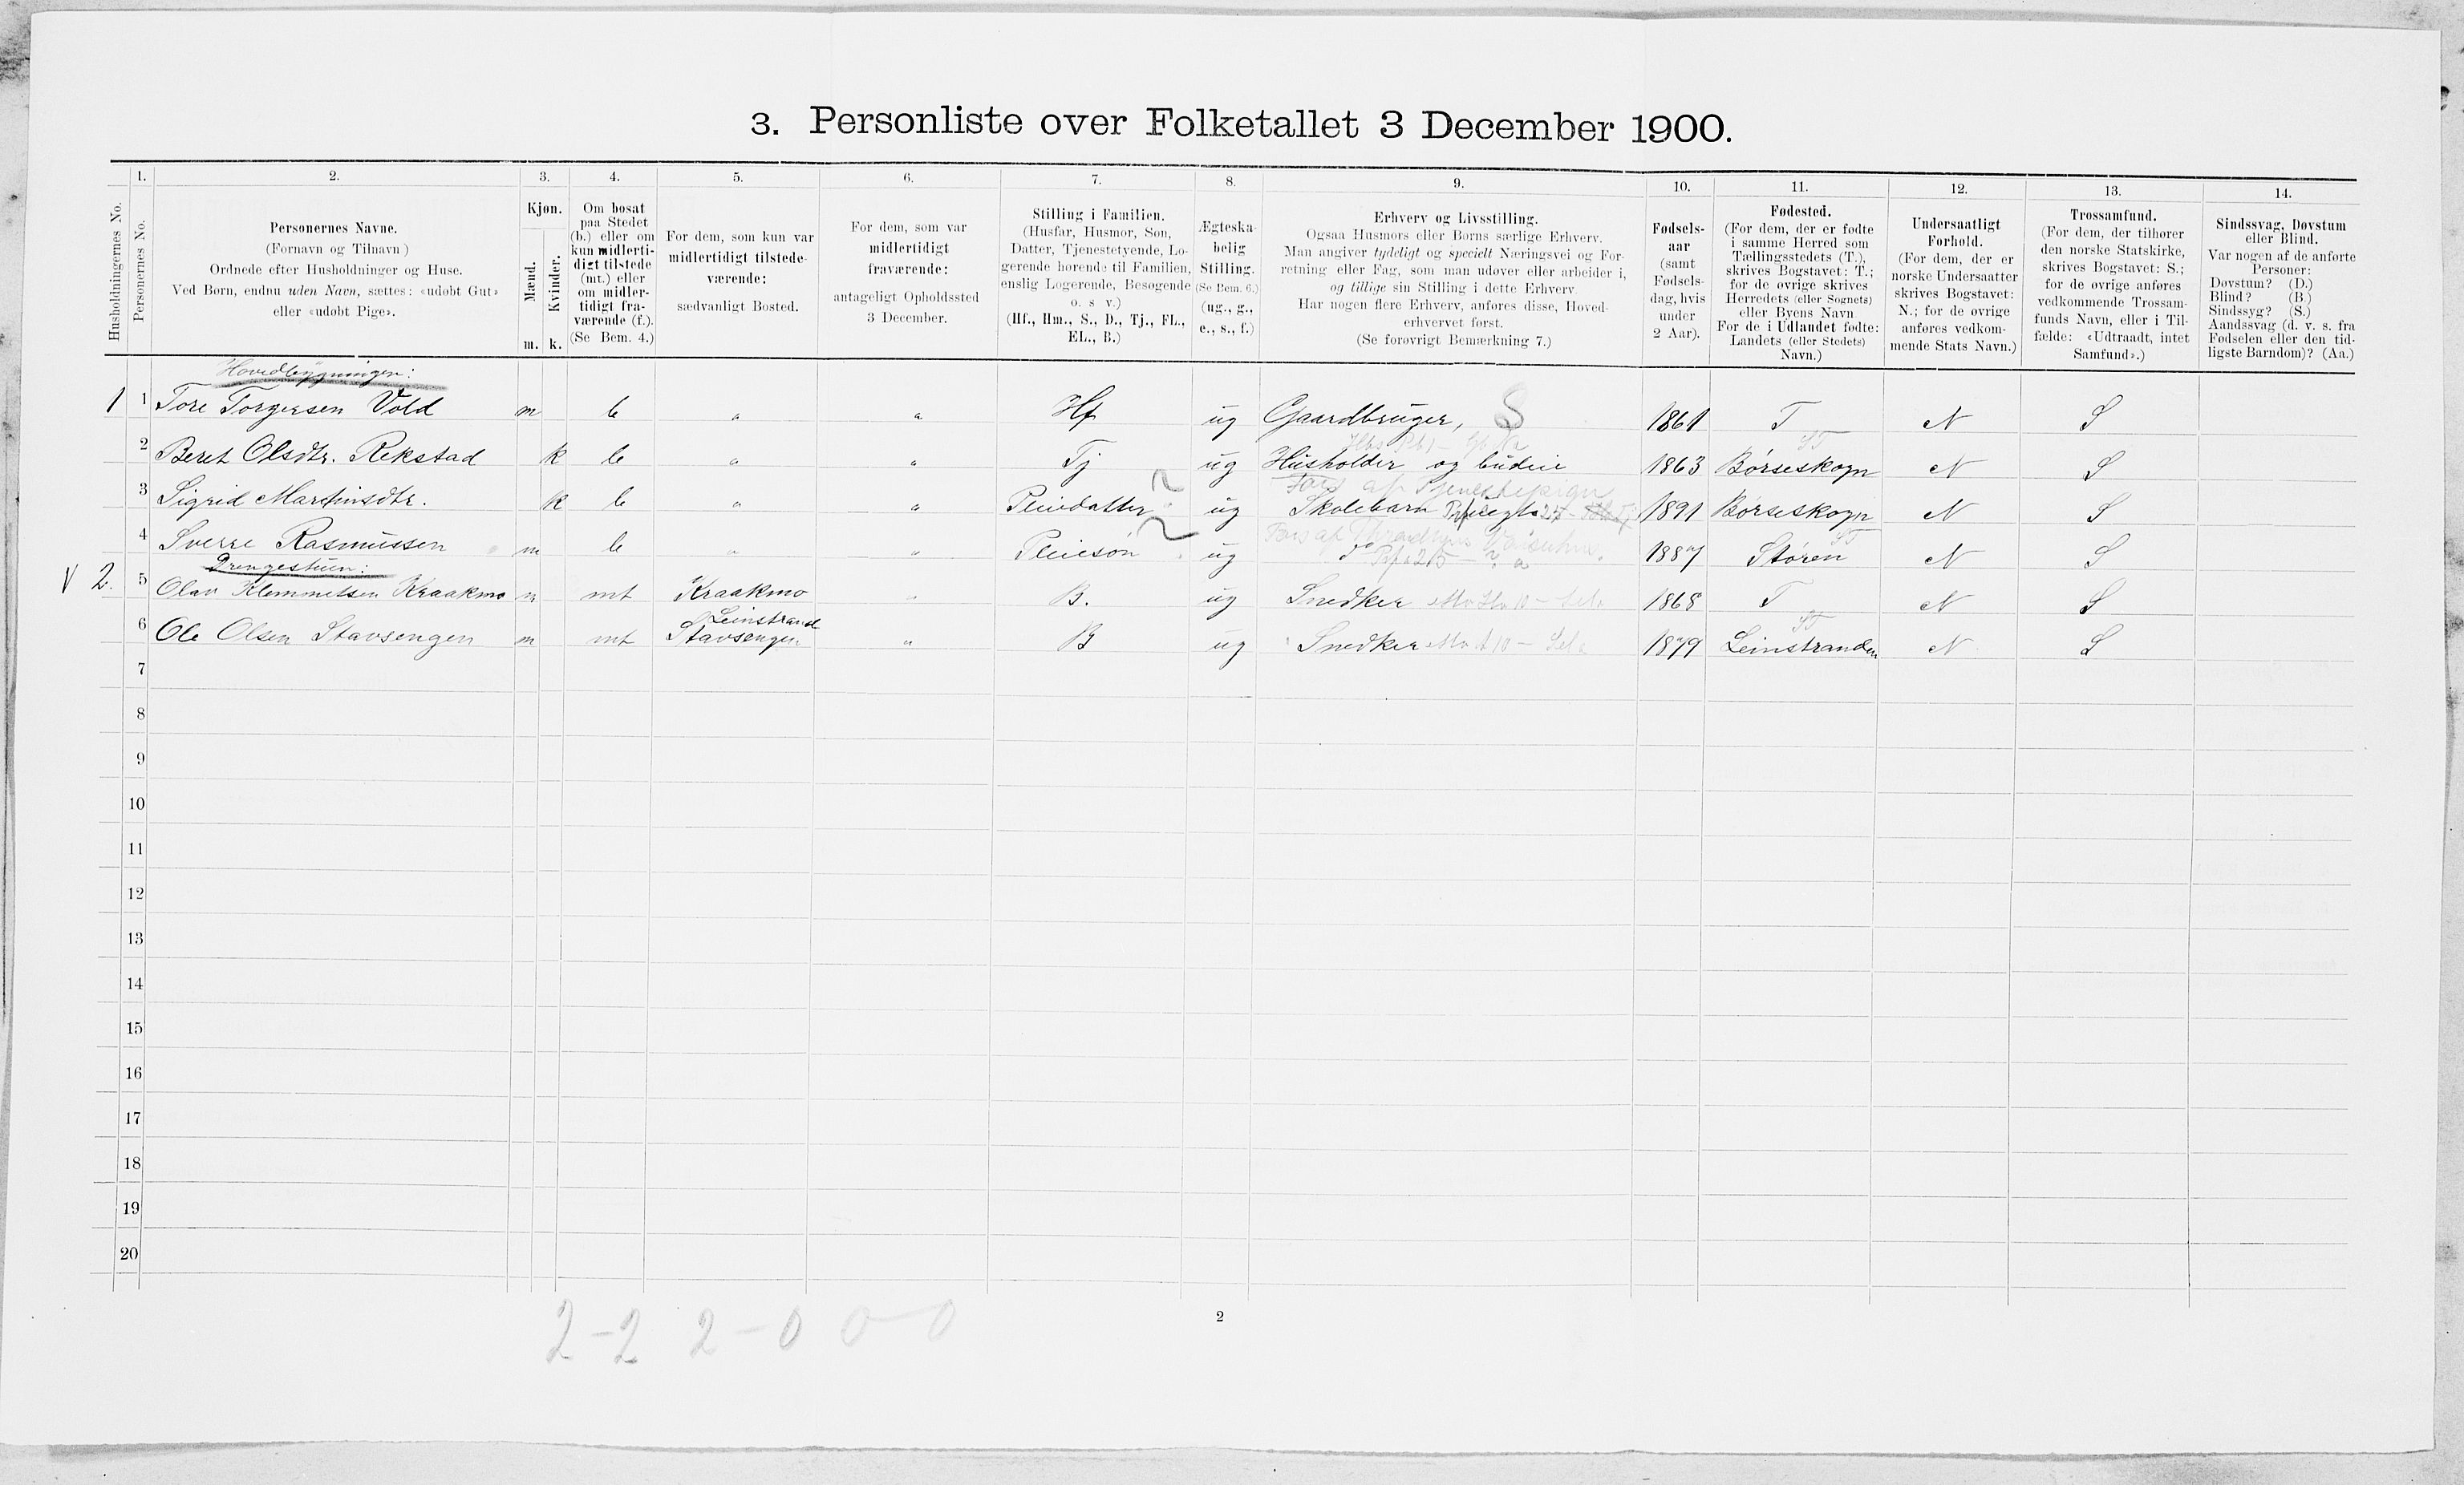 3. Personliste over Folketallet 3 December 1900.
1. 2. 3. 4. 5. 6. 7. 8. 9. 10. 11. 12. 13. 14.
Husholdningernes No.
Personernes No.
Personernes Navne.
(Fornavn og Tilnavn)
Ordnede efter Husholdninger og Huse.
Ved Børn, endnu uden Navn, sættes: «udøbt Gut»
eller «udøbt Pige».
Kjøn.
Mænd.
Kvinder.
m. k.
Om bosat
paa Stedet
(b.) eller om
kun midlerti-
digt tilstede
(mt.) eller
om midler-
tidigt fra-
værende (f.).
(Se Bem. 4.)
For dem, som kun var
midlertidigt tilstede-
værende:
sædvanligt Bosted.
For dem, som var
midlertidigt
fraværende:
antageligt Opholdssted
3 December.
Stilling i Familien.
(Husfar, Husmor, Søn,
Datter, Tjenestetyende, Lo-
gerende hørende til Familien,
enslig Logerende, Besøgende
o. s v.)
(Hf., Hm., S., D., Tj., FL.,
EL., B.)
Ægteska-
belig
Stilling.
(Se Bem. 6.)
(ug., g.,
e., s., f.)
Erhverv og Livsstilling.
Ogsaa Husmors eller Børns særlige Erhverv.
Man angiver tydeligt og specielt Næringsvei og For-
retning eller Fag, som man udøver eller arbeider i,
og tillige sin Stilling i dette Erhverv.
Har nogen flere Erhverv, anføres disse, Hoved-
erhvervet først.
(Se forøvrigt Bemærkning 7.)
Fødsels-
aar
(samt
Fødsels-
dag, hvis
under
2 Aar).
Fødested.
(For dem, der er fødte
i samme Herred som
Tællingsstedets (T.),
skrives Bogstavet: T.;
for de øvrige skrives
Herredets (eller Sognets)
eller Byens Navn.
For de i Udlandet fødte:
Landets (eller Stedets)
Navn.)
Undersaatligt
Forhold.
(For dem, der er
norske Undersaatter
skrives Bogstavet:
N.; for de øvrige
anføres vedkom-
mende Stats Navn.)
Trossamfund.
(For dem, der tilhører
den norske Statskirke,
skrives Bogstavet: S.;
for de øvrige anføres
vedkommende Trossam-
funds Navn, eller i Til-
fælde: «Udtraadt, intet
Samfund».)
Sindssvag, Døvstum
eller Blind.
Var nogen af de anførte
Personer:
Døvstum? (D.)
Blind? (B.)
Sindssyg? (S.)
Aandssvag (d. v. s. fra
Fødselen eller den tid-
ligste Barndom)? (Aa.)
Hovedbygningen:
1 1 Tore Torgersen Vold m b " " Hf ug Gaardbruger, S 1861 T N S
2 Beret Olsdtr. Rekstad k b " " Tj ug Husholder og budeie 1863 Børseskogn N S
Fors af Tjenestepige
3 Sigrid Marthinsdtr. k b " " Pleiedatter ug Skolebarn 1891 Børseskogn N S
4 Sverre Rasmussen m b " " Pleiesøn ug do 1887 Støren N S
Drengestuen:
V 2. 5 Olav Klemmetsen Kraakmo m mt Kraakmo " B. ug Snedker 1868 T N S
Leinstrand
6 Ole Olsen Stavsengen m mt Stavsengen " B ug Snedker 1879 Leinstranden N S
7
8
9
10
11
12
13
14
15
16
17
18
19
20
2-2 2-0 0-0
2